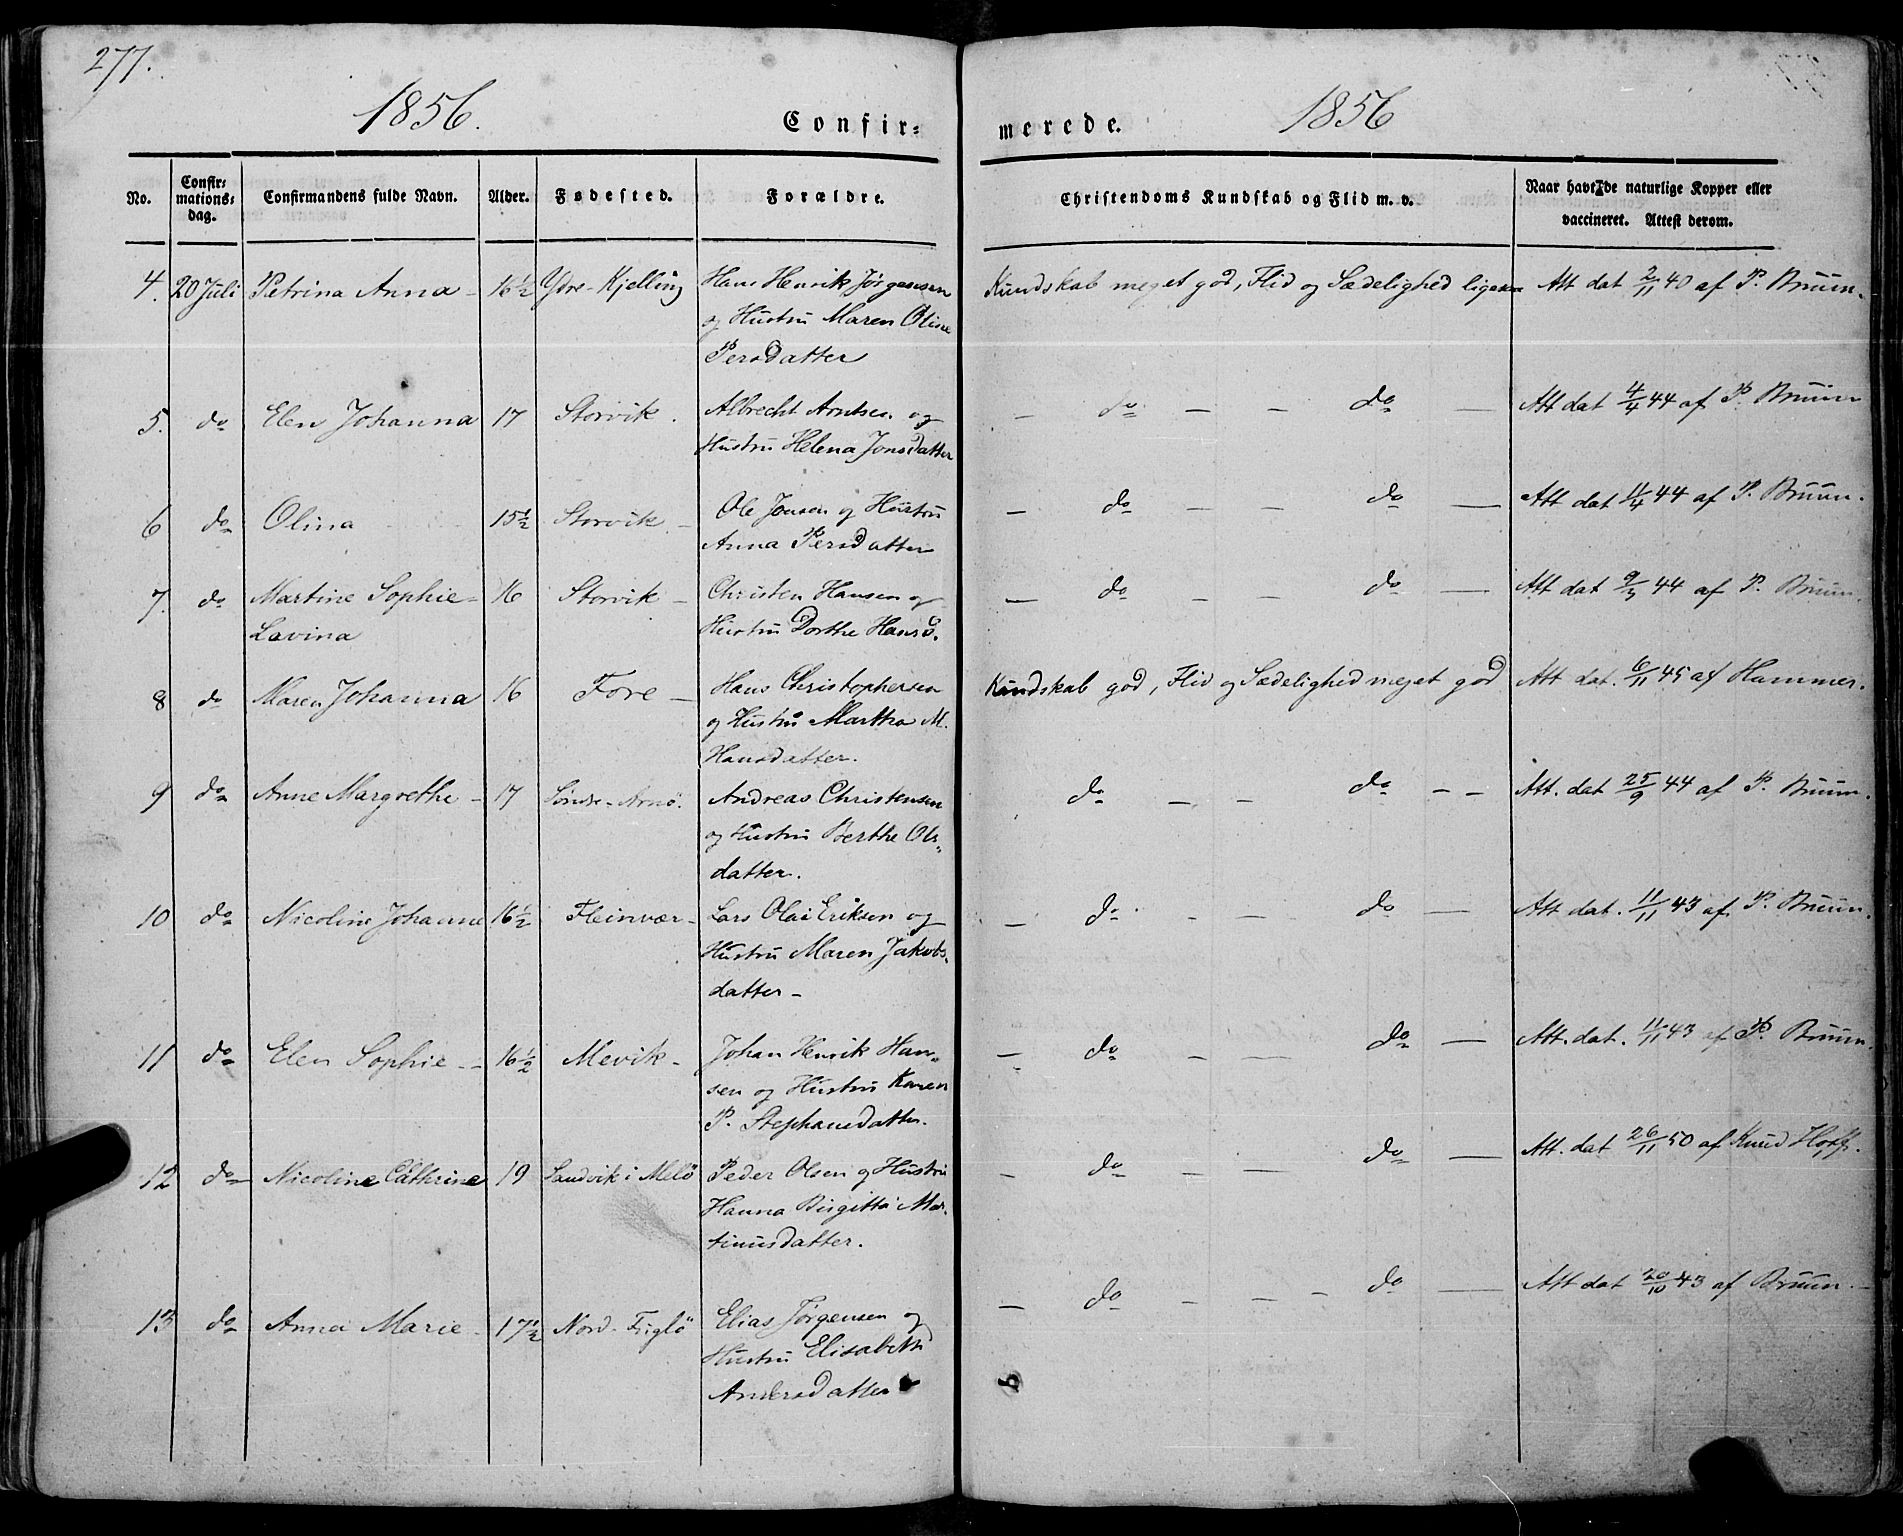 277.
1856.
Confir=
merede.
1856
No.
Confir=
mations=
dag.
Confirmandens fulde Navn.
Alder.
Fødested.
Forældre.
Christendoms Kundskab og Flid m. v.
Naar havt de naturlige Kopper eller
vaccineret. Attest derom.
4. 20 Juli Petrina Anna - 16½ Ydre-Kjelling Hans Henrik Jørgensen Kundskab meget god, Flid og Sædelighed ligesaa Att dat 2/11 40 af P. Bruun.
og Hustru Maren Oline
Persdatter
5. do Elen Johanna 17 Storvik. Albrecht Arntsen og - do - - do - Att dat 4/4 44 af P. Bruun
Hustru Helena Jonsdatter
6 do Olina 15½ Storvik - Ole Jonsen og Hustru - do - - do - Att dat 11/4 44 af P. Bruun.
Anna Persdatter
7. do Martine Sophie= 16 Storvik - Christen Hansen og - do - - do - Att dat 9/5 44 af P. Bruun.
Lavina Hustru Dorthe Hansd.
8 do Maren Johanna 16 Fore - Hans Christophersen Kundskab god, Flid og Sædelighed meget god Att dat. 6/11 45 af Hammer.
og Hustru Martha M.
Hansdatter.
9 do Anne Margrethe - 17 Söndre-Arnö. Andreas Christensen do - - do - - Att. dat 25/9 44 af P. Bruun.
og Hustru Berthe Ols=
datter.
10 do Nicoline Johanne 16½ Fleinvær - Lars Olai Eriksen og - do - - do - Att dat. 11/11 43 af P. Bruun.
Hustru Maren Jakobs=
datter -
11 do Elen Sophie - - 16½ Mevik - Johan Henrik Han= - do - - do - Att. dat. 11/11 43 af P. Bruun.
sen og Hustru Karen
P. Stephansdatter.
12 do Nicoline Cathrine 19 Sandvik i Melö Peder Olsen og Hustru - do - - do - Att. dat 26/11 50 af Knud Hoff.
Hanna Birgitta Mar=
tinusdatter.
13 do Anna Marie - 17½ Nord-Fuglö Elias Jørgensen og - do - - - do - Att dat 20/10 43 af Bruun. -
Hustru Elisabeth
Andersdatter